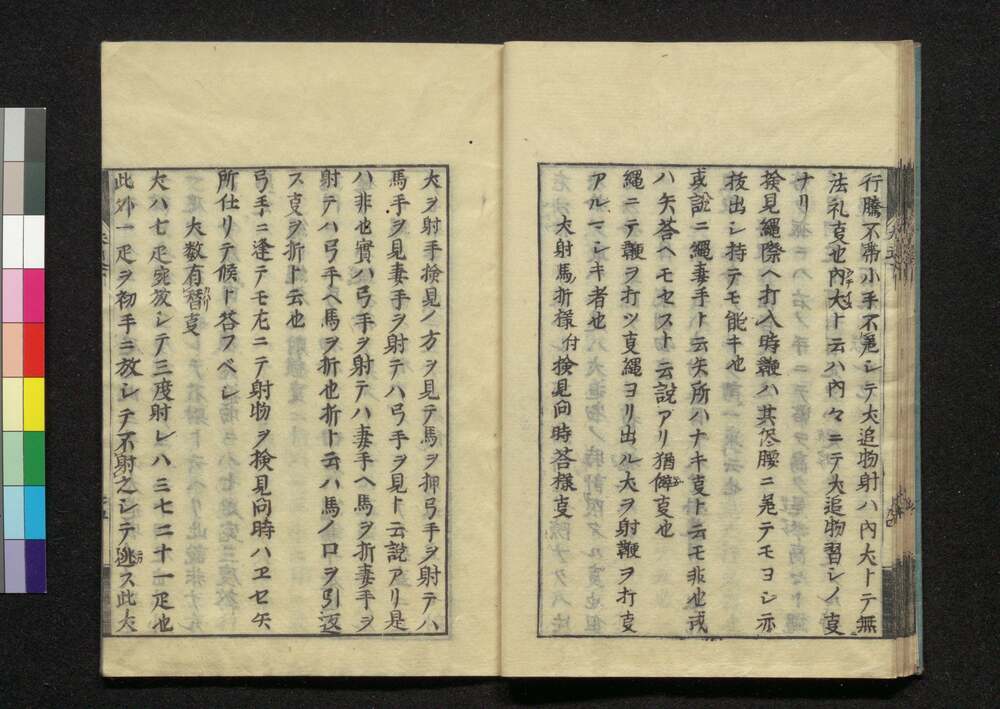 行騰不帶小手不差シテ犬追物射ハ內犬トテ無
法礼𫝆也內犬ト云ハ內々ニテ犬追物習シノ𫝆
ナリ
検見繩際ヘ打入時鞭ハ其侭腰ニ差テモヨシ亦
抜出シ持テモ能キ也
或說ニ繩妻手ト云矢所ハナキ𫝆ト云モ非也或
ハ矢荅ヘモセスト云說アリ猶僻𫝆也
繩ニテ鞭ヲ打ツ𫝆繩ヨリ出ル犬ヲ射鞭ヲ打𫝆
アルマシキ者也
犬射馬折樣付検見向時荅樣𫝆
犬ヲ射手検見ノ方ヲ見テ馬ヲ押弓手ヲ射テハ
馬手ヲ見妻手ヲ射テハ弓手ヲ見ト云說アリ是
ハ非也實ハ弓手ヲ射テハ妻手ヘ馬ヲ折妻手ヲ
射テハ弓手ヘ馬ヲ折也折ト云ハ馬ノ口ヲ引返
ス𫝆ヲ折ト云也
弓手ニ逢テモ左ニテ射物ヲ検見向時ハヱセ矢
所仕リテ候ト荅フベシ
犬數有替𫝆
犬ハ七疋宛放シテ三度射レハ三七二十一疋也
此外一疋ヲ初手ニ放シテ不射之シテ逃ス此犬